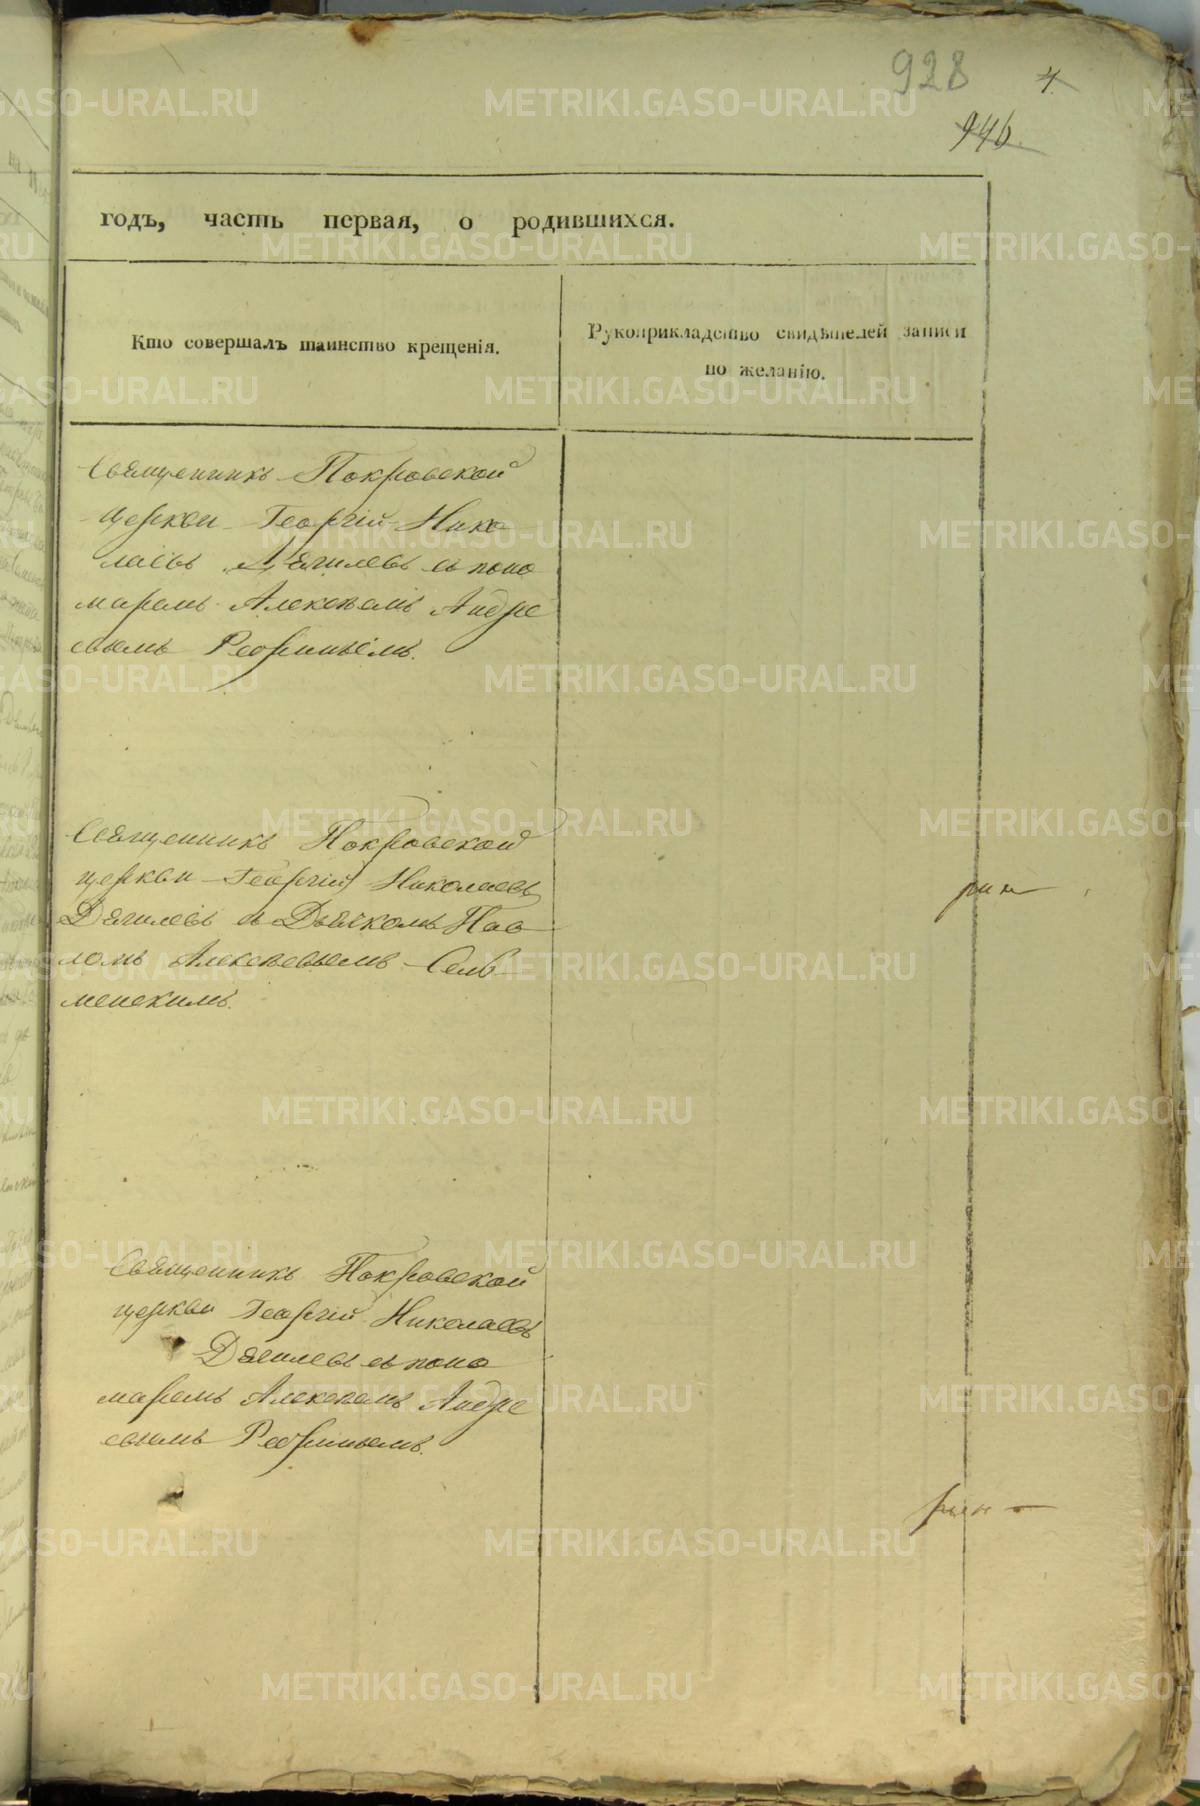 928
4.
946.
годъ, часть первая, о родившихся.
Кто совершалъ таинство крещенія.
Рукоприкладство свидѣтелей записи
по желанію.
Священникъ Покровской
церкви Георгій Нико
лаевъ Дягилевъ съ поно
маремъ Алексѣемъ Андре
евымъ Рефицыемъ.
Священникъ Покровской
церкви Георгій Николаевъ
Дягилевъ и Дьячкомъ Пав
ломъ Алексѣевымъ Сель
менскимъ.
Священникъ Покровской
церкви Георгій Николаевъ
Дягилевъ съ поно
маремъ Алексѣемъ Андре
евымъ
METRIKI.GASO-URAL.RU